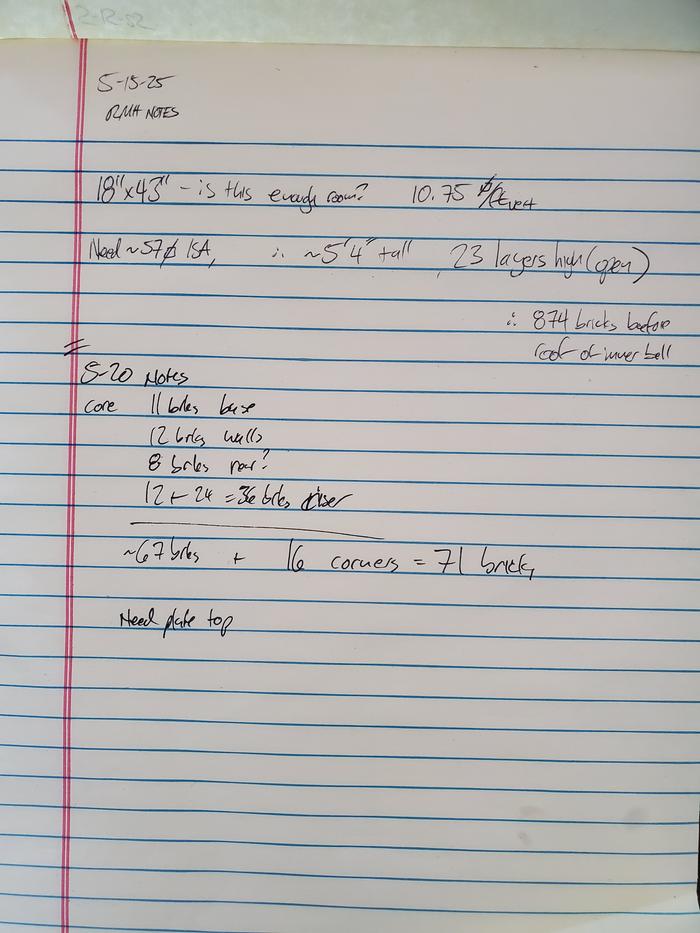 5-15-25
RMH NOTES
18"x43" - is this enough room? 10.75 ⌀/ft vert
Need ~57⌀ ISA, ∴ ~5'4" tall, 23 layers high (open)
∴ 874 bricks before
roof of inner bell
5-20 Notes
core 11 brks base
12 brks walls
8 brks roof?
12 + 24 = 36 brks riser
~67 brks + 16 corners = 71 bricks
Need plate top